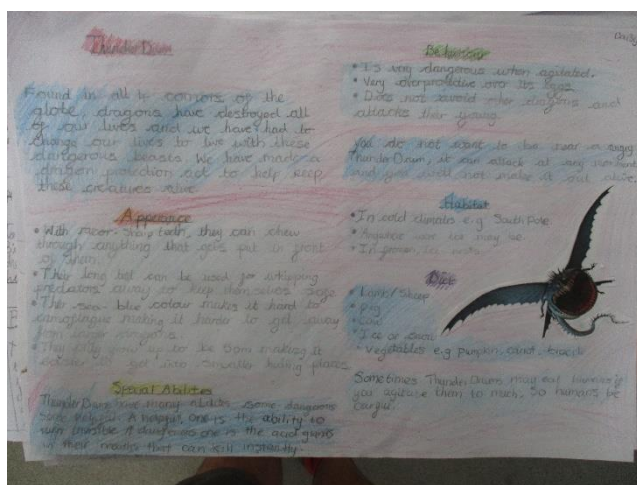 Thunder Drum
Found in all 4 corners of the
globe, dragons have destroyed all
of our lives and we have had to
change our lives to live with these
dangerous beasts. We have made a
dragon protection act to help keep
these creatures alive.
Apperance
• With razor-sharp teeth, they can chew
through anything that gets put in front
of them.
• Their long tail can be used for whipping
predators away to keep themselves safe
• Their sea-blue colour makes it hard to
making it harder to get away
from
• They only grow up to be 50m making it
to get into smaller hiding places
Special Abilities
Thunder Drum have many abilities some dangerous
some helpful. A helpful one is the ability to
turn invisible. A dangerous one is the acid
in their mouths that can kill instantly.
Behaviour
• Is very dangerous when agitated.
• Very overprotective over its eggs.
• Does not avoid other dragons and
attacks their young.
You do not want to be near a angry
Thunder Drum, it can attack at any moment
and you will not make it out alive.
Habitat
• In cold climats e.g South Pole.
• Anywhere
• In
Diet
• Lamb/Sheep
• Pig
• Cow
• Ice or Snow
• Vegetables e.g pumpkin, carrot,
Sometimes Thunder Drum may eat humans if
you agitate them to much. So humans be
careful